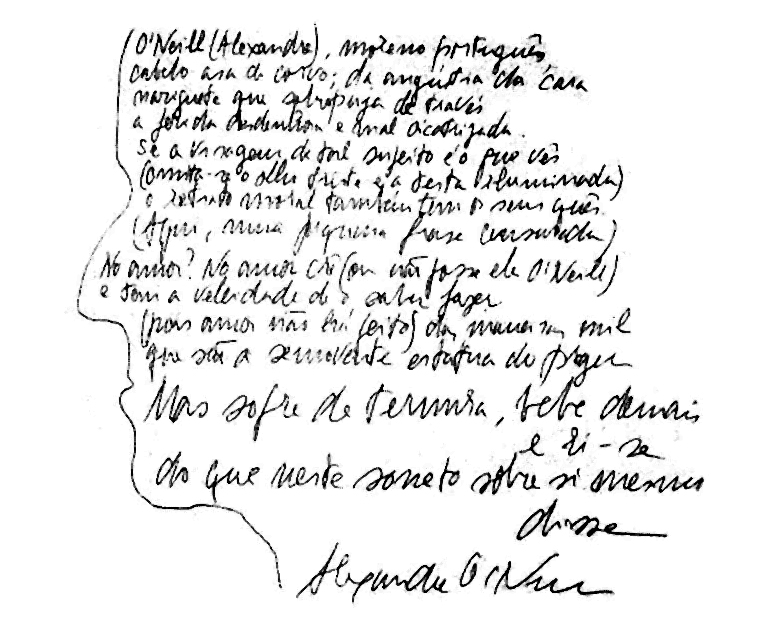 O'Neill (Alexandre), moreno português,
cabelo asa de corvo; da angústia da cara
nariguete que sobrepuja de través
a ferida desdenhosa e mal cicatrizada.
Se a visagem de tal sujeito é o que vês
(omita-se o olho triste e a testa iluminada)
o retrato moral também tem os seus quês
(Aqui, uma pequena frase censurada)
No amor? No amor crê (ou não fosse ele O'Neill)
e tem a veleidade de o saber fazer
(pois amor não há feito) das maneiras mil
que são a semovente estátua do prazer
Mas sofre de ternura, bebe demais
e ri-se
do que neste soneto sobre si mesmo
disse
Alexandre O'Neill